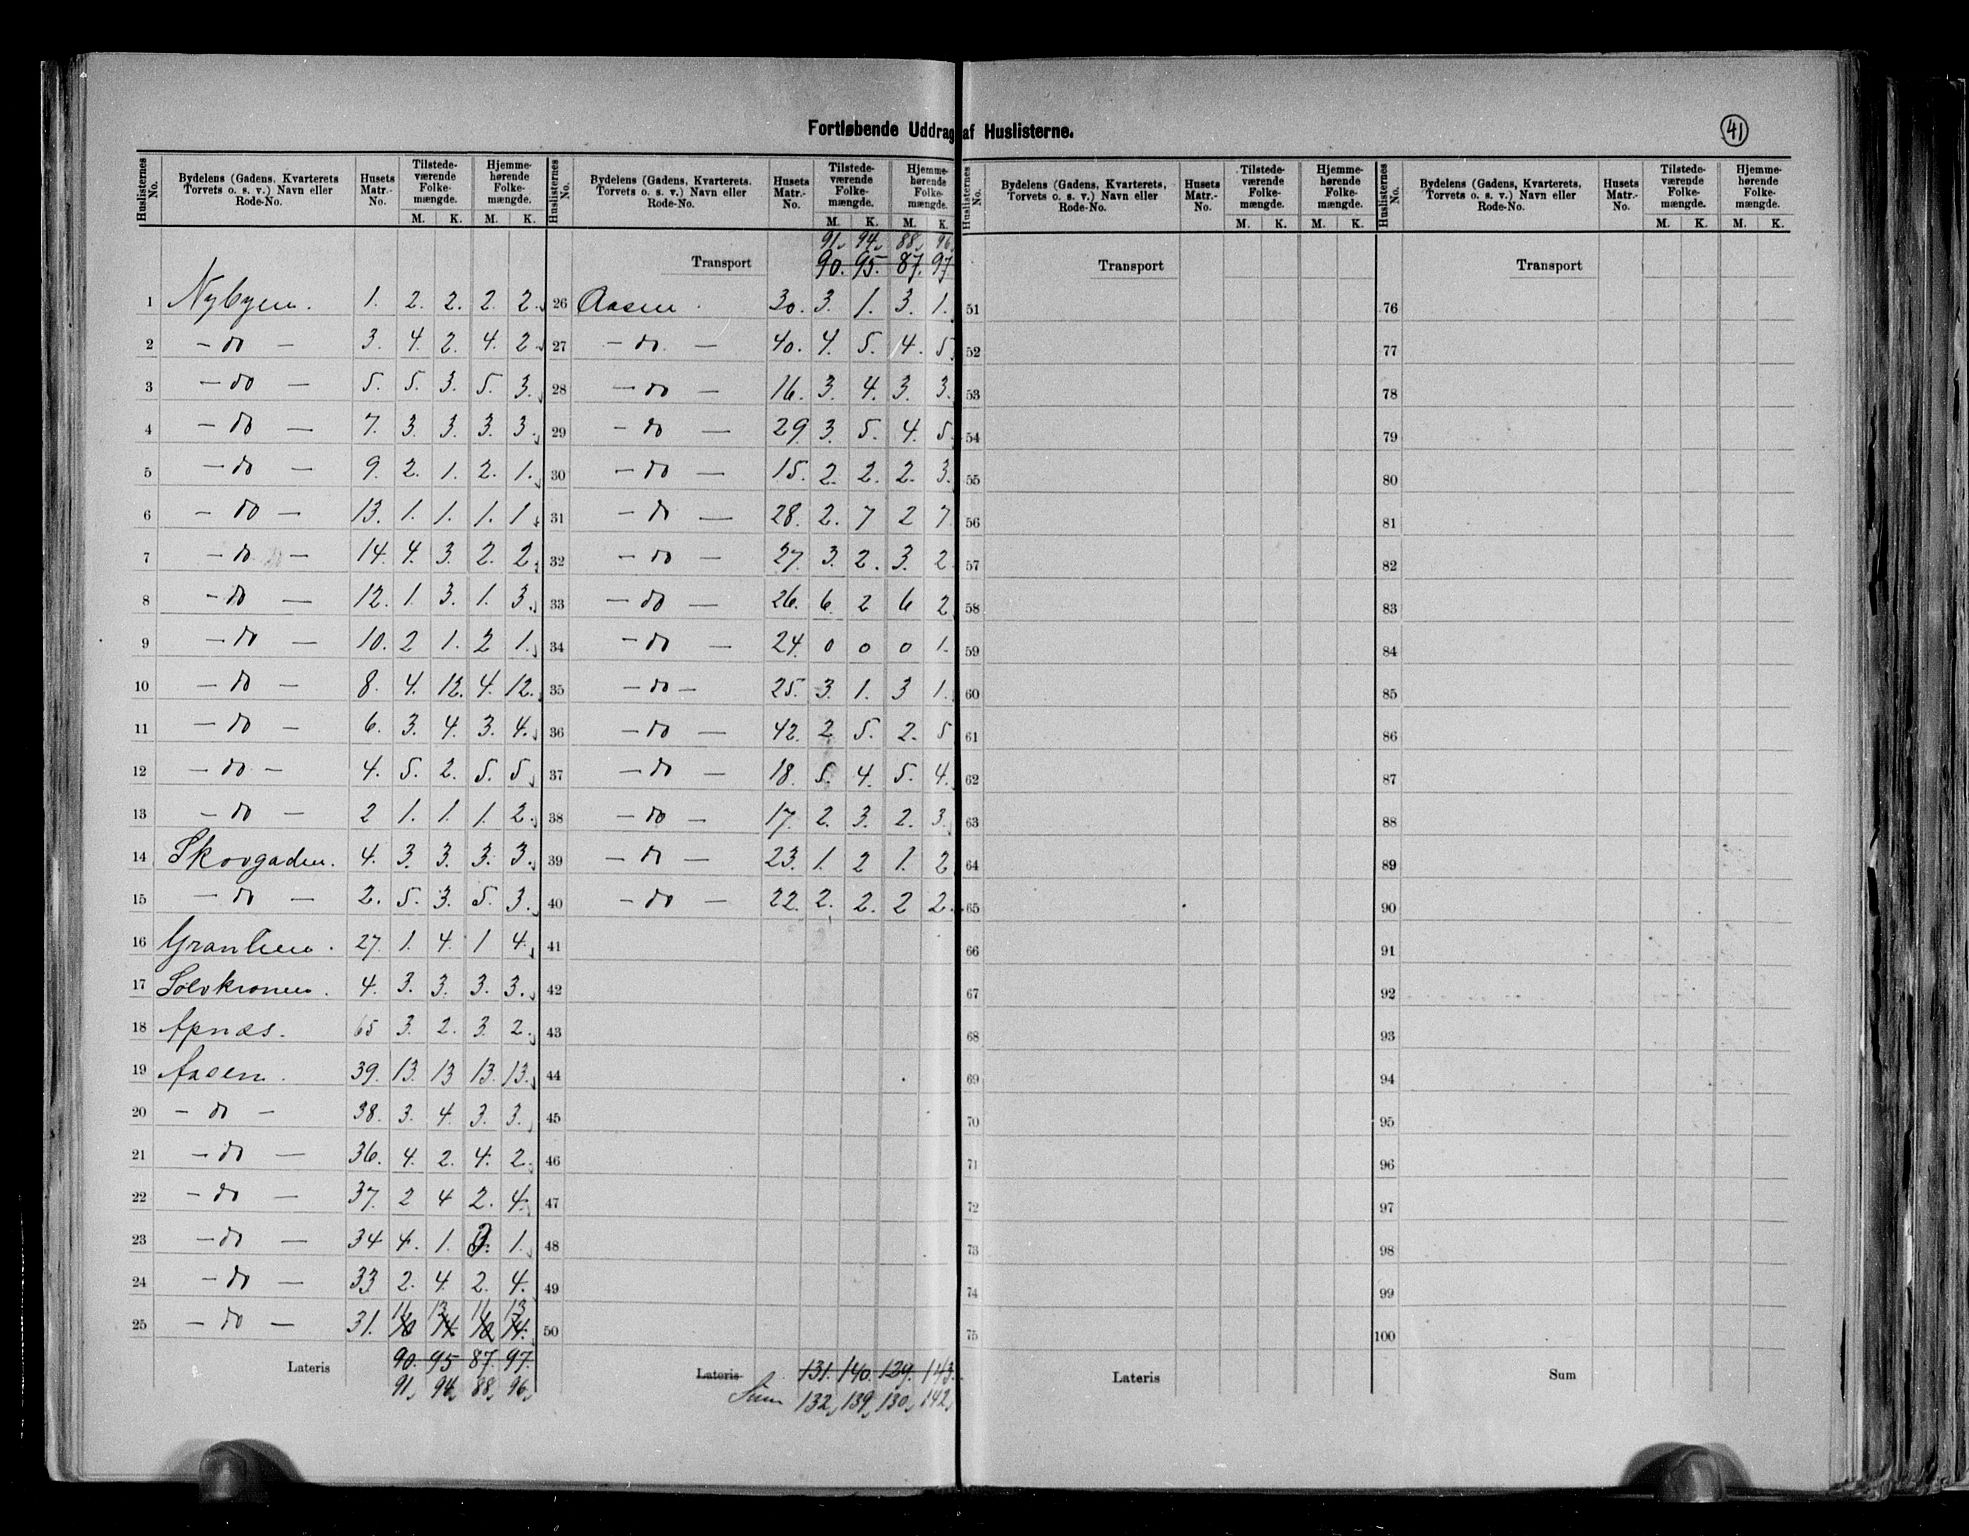 Fortløbende Uddrag af Huslisterne.
41
Huslisternes No. | Bydelens (Gadens, Kvarterets Torvets o. s. v.) Navn eller Rode-No. | Husets Matr.-No. | Tilstedeværende Folkemængde. M. K. | Hjemmehørende Folkemængde. M. K.
1 Nybyen. 1. 2. 2. 2. 2.
2 — do — 3. 4. 2. 4. 2.
3 — do — 5. 5. 3. 5. 3.
4 — do — 7. 3. 3. 3. 3.
5 — do — 9. 2. 1. 2. 1.
6 — do — 13. 1. 1. 1. 1
7 — do — 14. 4. 3. 2. 2.
8 — do — 12. 1. 3. 1. 3.
9 — do — 10. 2 1. 2 1.
10 — do — 8. 4. 12. 4. 12.
11 — do — 6. 3. 4. 3. 4.
12 — do — 4. 5. 2. 5. 5.
13 — do — 2 1. 1. 1. 2.
14 Skovgaden. 4. 3. 3. 3. 3.
15 — do — 2. 5. 3. 5. 3.
16 Granlien. 27. 1. 4. 1 4.
17 Sølvkronen. 4. 3. 3. 3. 3.
18 Apnæs. 65 3. 2. 3. 2.
19 Aasen. 39. 13. 13 13. 13.
20 — do — 38. 3. 4. 3. 3.
21 — do — 36. 4. 2. 4. 2.
22 — do — 37. 2 4 2. 4.
23 — do — 34 4. 1. 3. 1.
24 — do — 33 2. 4. 2. 4.
25 — do — 31. 11 13 11 13
10 14 10 14.
Lateris 90. 95 87. 97.
91, 94, 88, 96,
Huslisternes No. | Bydelens (Gadens, Kvarterets. Torvets o. s. v.) Navn eller Rode-No. | Husets Matr.-No. | Tilstedeværende Folkemængde. M. K. | Hjemmehørende Folkemængde. M. K.
91, 94, 88, 96,
Transport 90. 95. 87. 97
26 Aasen. 30. 3. 1. 3. 1.
27 — do — 40. 4. 5. 4. 5
28 — do — 16. 3. 4. 3. 3.
29 — do — 29. 3. 5. 4. 5.
30 — do — 15. 2. 2. 2. 3.
31 — do — 28. 2. 7 2 7.
32 — do — 27. 3. 2. 3. 2.
33 — do — 26. 6. 2 6 2
34 — do — 24. 0 0 0 1.
35 — do — 25. 3. 1. 3 1.
36 — do — 42. 2 5. 2. 5
37 — do — 18. 5. 4. 5. 4.
38 — do — 17. 2. 3. 2. 3.
39 — do — 23. 1. 2 1. 2
40 — do — 22. 2. 2. 2 2.
41
42
43
44
45
46
47
48
49
50
Lateris 131. 140. 129. 143.
Sum 132, 139, 130, 142,
Huslisternes No. | Bydelens (Gadens, Kvarterets, Torvets o. s. v.) Navn eller Rode-No. | Husets Matr.-No. | Tilstedeværende Folkemængde. M. K. | Hjemmehørende Folkemængde. M. K.
Transport
51
52
53
54
55
56
57
58
59
60
61
62
63
64
65
66
67
68
69
70
71
72
73
74
75
Lateris
Huslisternes No. | Bydelens (Gadens, Kvarterets, Torvets o. s. v.) Navn eller Rode-No. | Husets Matr.-No. | Tilstedeværende Folkemængde. M. K. | Hjemmehørende Folkemængde. M. K.
Transport
76
77
78
79
80
81
82
83
84
85
86
87
88
89
90
91
92
93
94
95
96
97
98
99
100
Sum